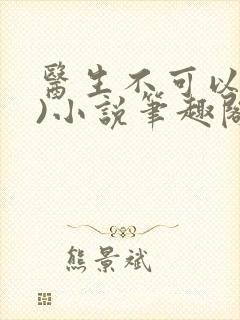 醫生不可以
)小說筆趣閣
熊景斌